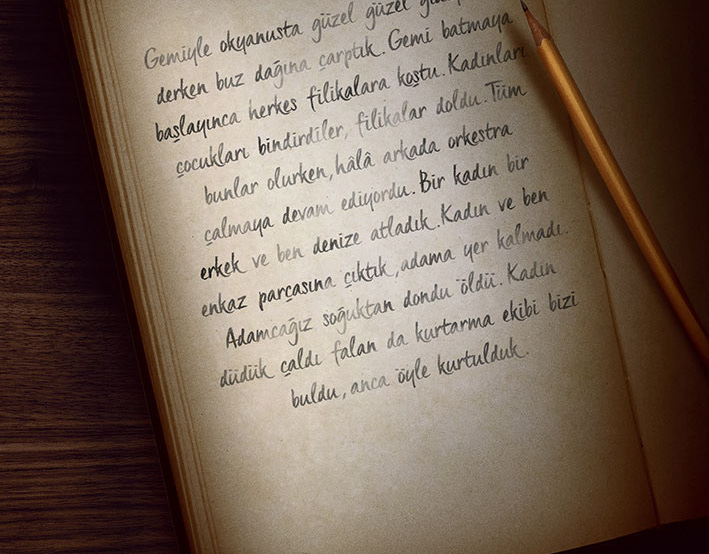 Gemiyle okyanusta güzel güzel
derken buz dağına çarptık. Gemi batmaya
başlayınca herkes filikalara koştu. Kadınları
çocukları bindirdiler, filikalar doldu. Tüm
bunlar olurken, hâlâ arkada orkestra
çalmaya devam ediyordu. Bir kadın bir
erkek ve ben denize atladık. Kadın ve ben
enkaz parçasına çıktık, adama yer kalmadı.
Adamcağız soğuktan dondu öldü. Kadın
düdük çaldı falan da kurtarma ekibi bizi
buldu, anca öyle kurtulduk.